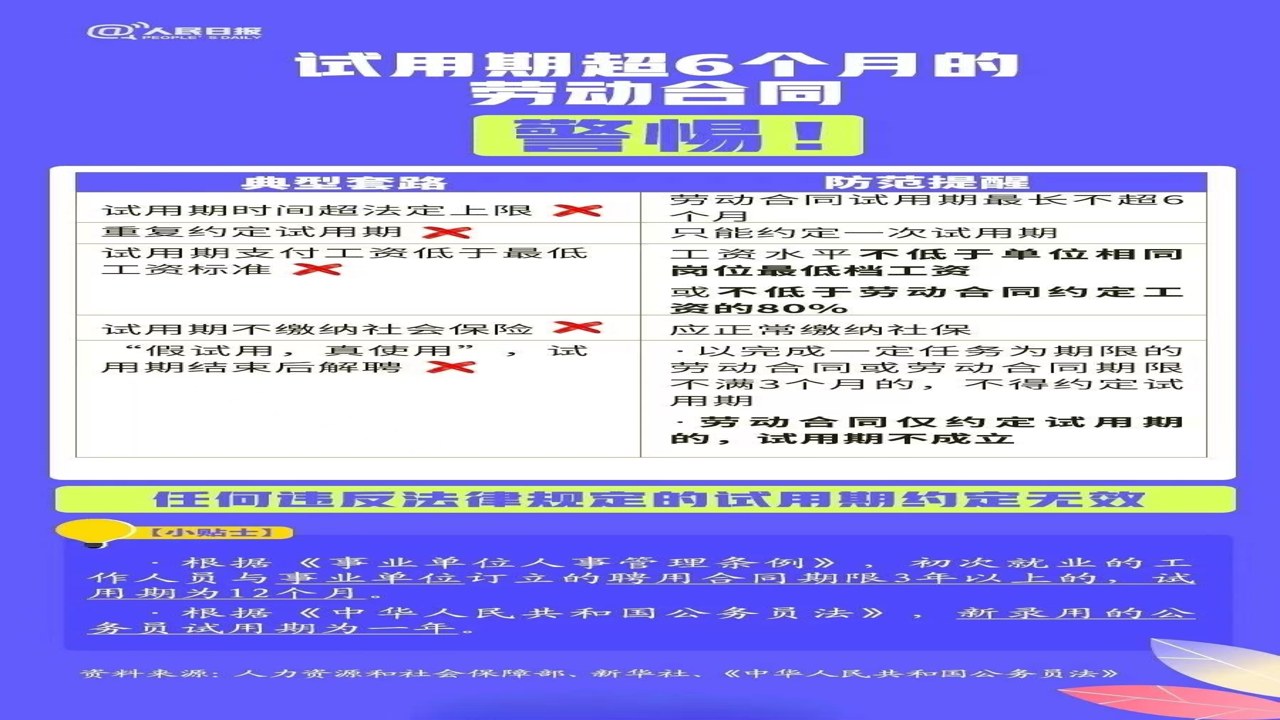 @人民日报
PEOPLE'S DAILY
试用期超6个月的
劳动合同
警惕！
典型套路
防范提醒
试用期时间超法定上限
劳动合同试用期最长不超6
个月
重复约定试用期
只能约定一次试用期
试用期支付工资低于最低
工资标准
工资水平不低于单位相同
岗位最低档工资
或不低于劳动合同约定工
资的80%
试用期不缴纳社会保险
应正常缴纳社保
“假试用，真使用”，试
用期结束后解聘
·以完成一定任务为期限的
劳动合同或劳动合同期限
不满3个月的，不得约定试
用期
·劳动合同仅约定试用期
的，试用期不成立
任何违反法律规定的试用期约定无效
【小贴士】
·根据《事业单位人事管理条例》，初次就业的工
作人员与事业单位订立的聘用合同期限3年以上的，试
用期为12个月。
·根据《中华人民共和国公务员法》，新录用的公
务员试用期为一年。
资料来源：人力资源和社会保障部、新华社、《中华人民共和国公务员法》